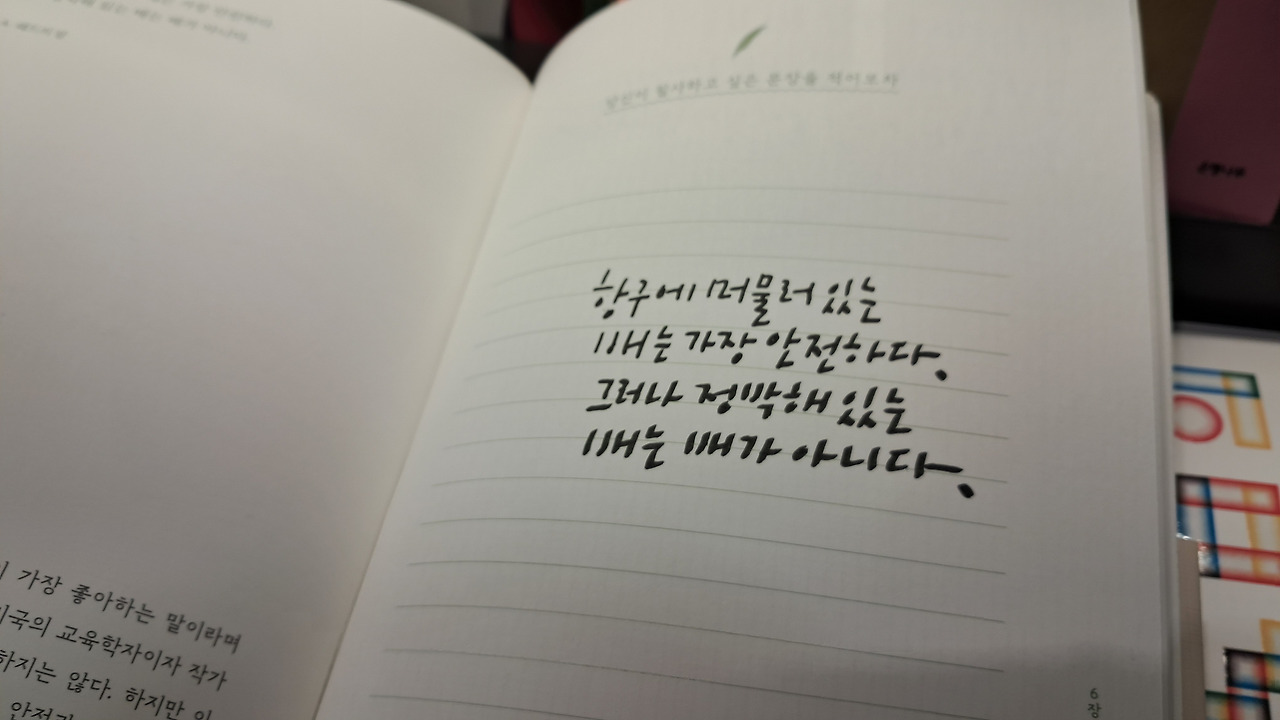 가장 좋아하는 말이라며
미국의 교육학자이자 작가
하지는 않다. 하지만
당신이 필사하고 싶은 문장을 적어보자
항구에 머물러 있는
배는 가장 안전하다.
그러나 정박해 있는
배는 배가 아니다.
6
장